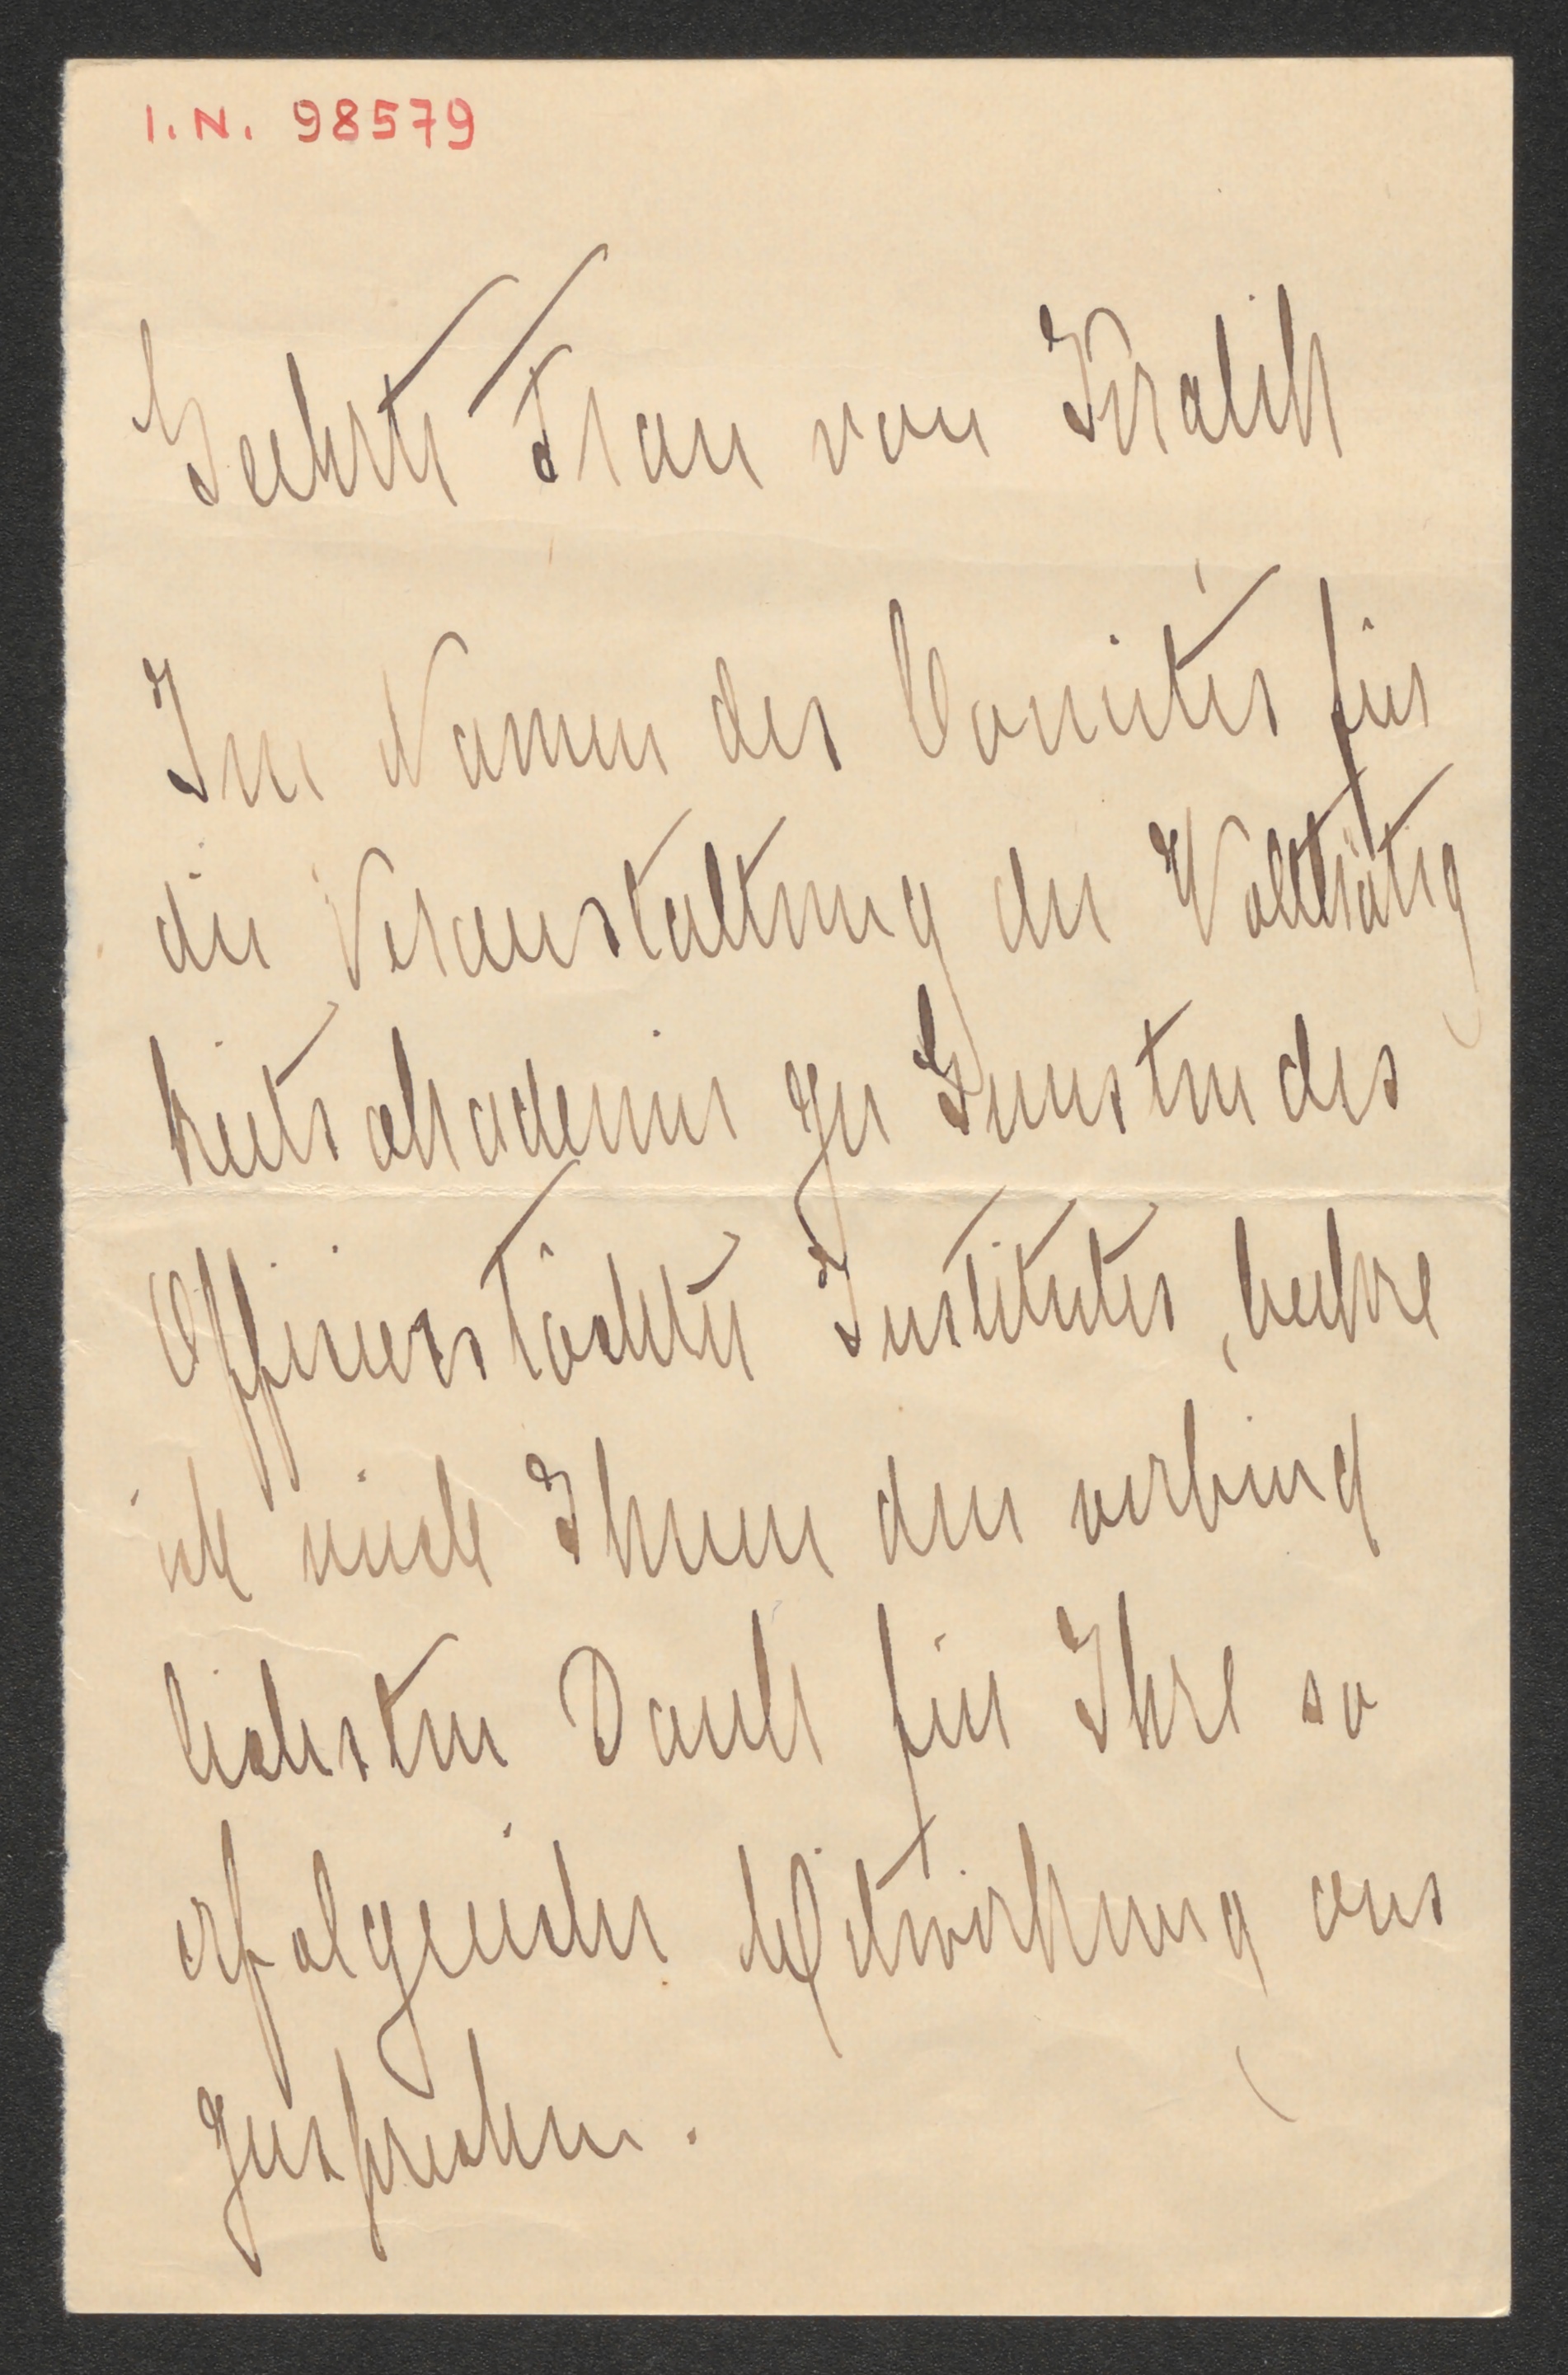 I.N. 98579
Geehrte Frau von Kralik
Im Namen des Comités für
die Veranstaltung der Wolthätig
keitsakademie zu Gunsten des
Offizierstöchter Institutes, beehre
ich mich Ihnen den verbind
lichsten Dank für Ihre so
erfolgreiche Mitwirkung aus
zusprechen.